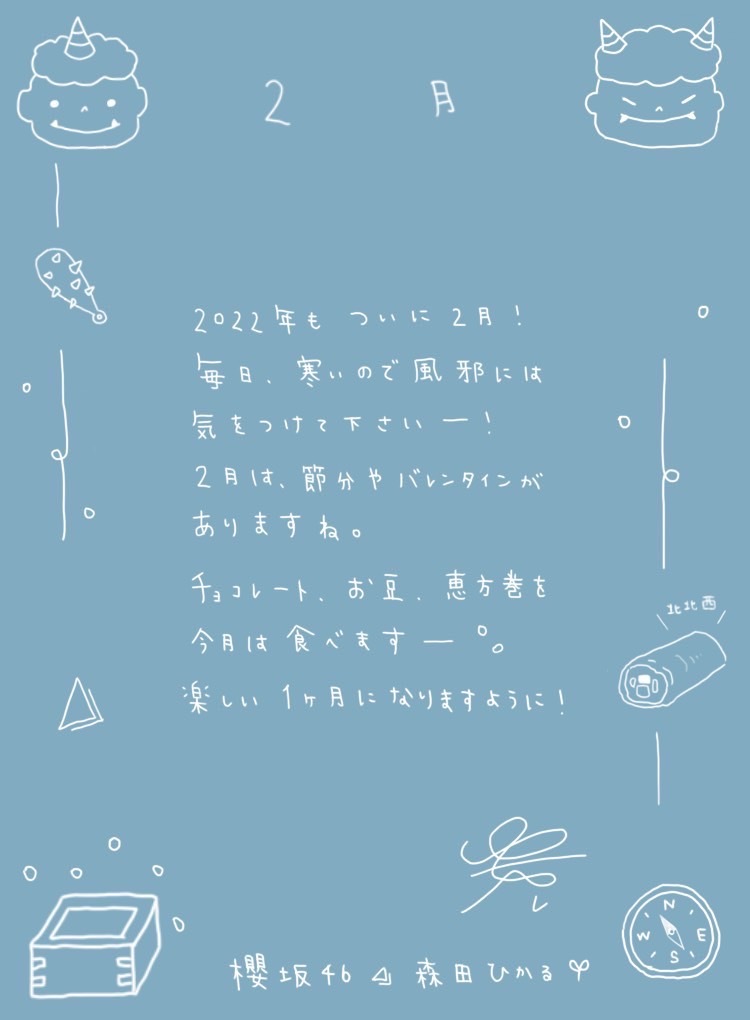 2月
2022年も ついに 2月!
毎日、寒いので風邪には
気をつけて下さいー!
2月は、節分やバレンタインが
ありますね。
チョコレート、お豆、恵方巻を
今月は食べますー。。
北北西
楽しい 1ヶ月になりますように!
N
W E
S
櫻坂46 森田ひかる